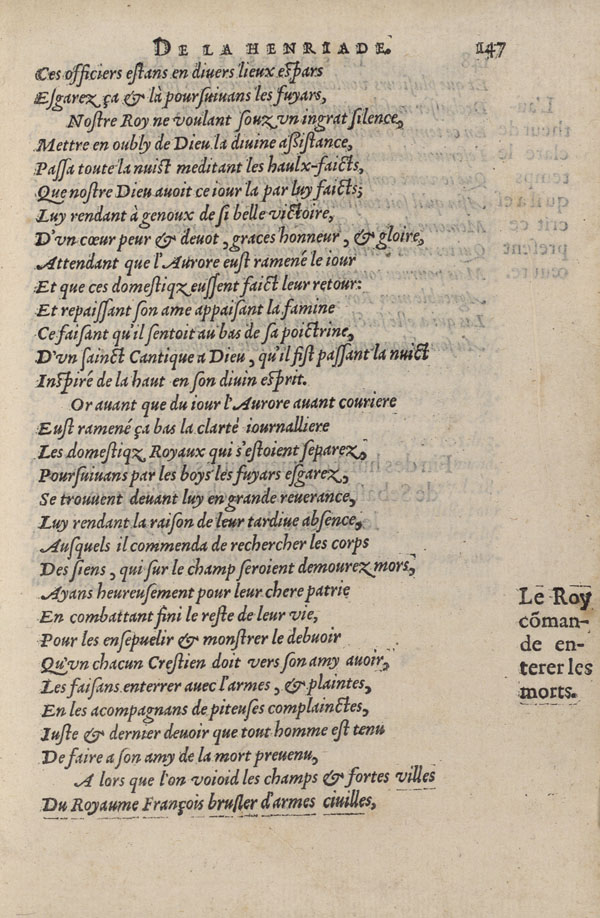 DE LA HENRIADE. 147
Ces officiers eſtans en divers lieux eſpars
Eſgarez ça & là pourſuivans les fuyars,
Noſtre Roy ne voulant ſouz vn ingrat ſilence,
Mettre en oubly de Dieu la diuine aſſiſtance,
Paſſa toute la nuict meditant les haulx-faicts,
Que noſtre Dieu auoit ce iour la par luy faicts;
Luy rendant à genoux de ſi belle victoire,
D'vn cœur peur & deuot, graces honneur, & gloire,
Attendant que l'Aurore euſt ramené le iour
Et que ces domeſtiqz euſſent faict leur retour:
Et repaiſſant ſon ame appaiſant la famine
Ce faiſant qu'il ſentoit au bas de ſa poictrine,
D'vn ſainct Cantique a Dieu, qu'il fiſt paſſant la nuict
Inſpiré de la haut en ſon diuin eſprit.
Or auant que du iour l'Aurore auant couriere
Euſt ramené ça bas la clarté iournalliere
Les domeſtiqz Royaux qui s'eſtoient ſeparez,
Pourſuiuans par les boys les fuyars eſgarez,
Se trouuent deuant luy en grande reuerance,
Luy rendant la raiſon de leur tardiue abſence,
Auſquels il commenda de rechercher les corps
Des ſiens, qui ſur le champ ſeroient demourez mors,
Ayans heureuſement pour leur chere patrie
En combattant fini le reſte de leur vie,
Pour les enſepuelir & monſtrer le debuoir
Qu'vn chacun Creſtien doit vers ſon amy auoir,
Les faiſans enterrer auec l'armes, & plaintes,
En les acompagnans de piteuſes complainctes,
Iuſte & dernier devoir que tout homme eſt tenu
De faire a ſon amy de la mort preuenu,
A lors que l'on voioid les champs & fortes villes
Du Royaume François bruſler d'armes ciuilles,
Le Roy
cõman-
de en-
terer les
morts.